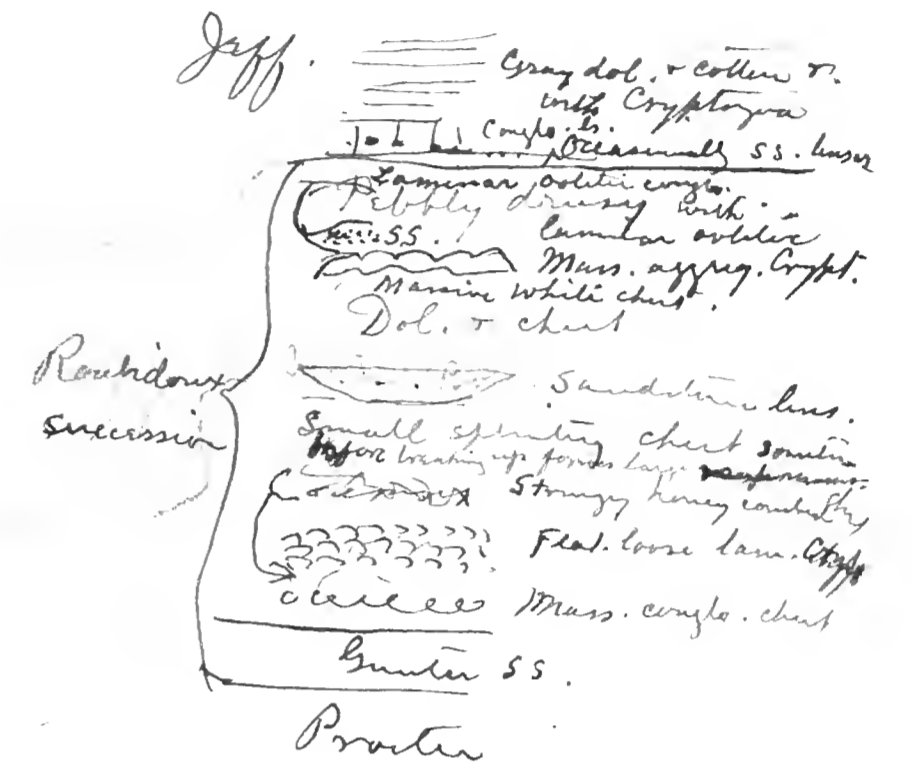 Jeff.
Gray dol. & cotton r.
with Cryptozoa
Conglo. ls.
Occasionally SS. lenses
Laminar oolitic conglo.
Pebbly drusy with
laminar oolitic
SS.
Mass. aggreg. Crypt.
Massive white chert.
Dol. & chert
Roubidoux
succession
Sandstone lens.
Small splintery chert
before breaking up forms large
Stringy honey combed
Flat. loose lam. Crypt
Mass. conglo. chert
Gunter SS.
Proctor